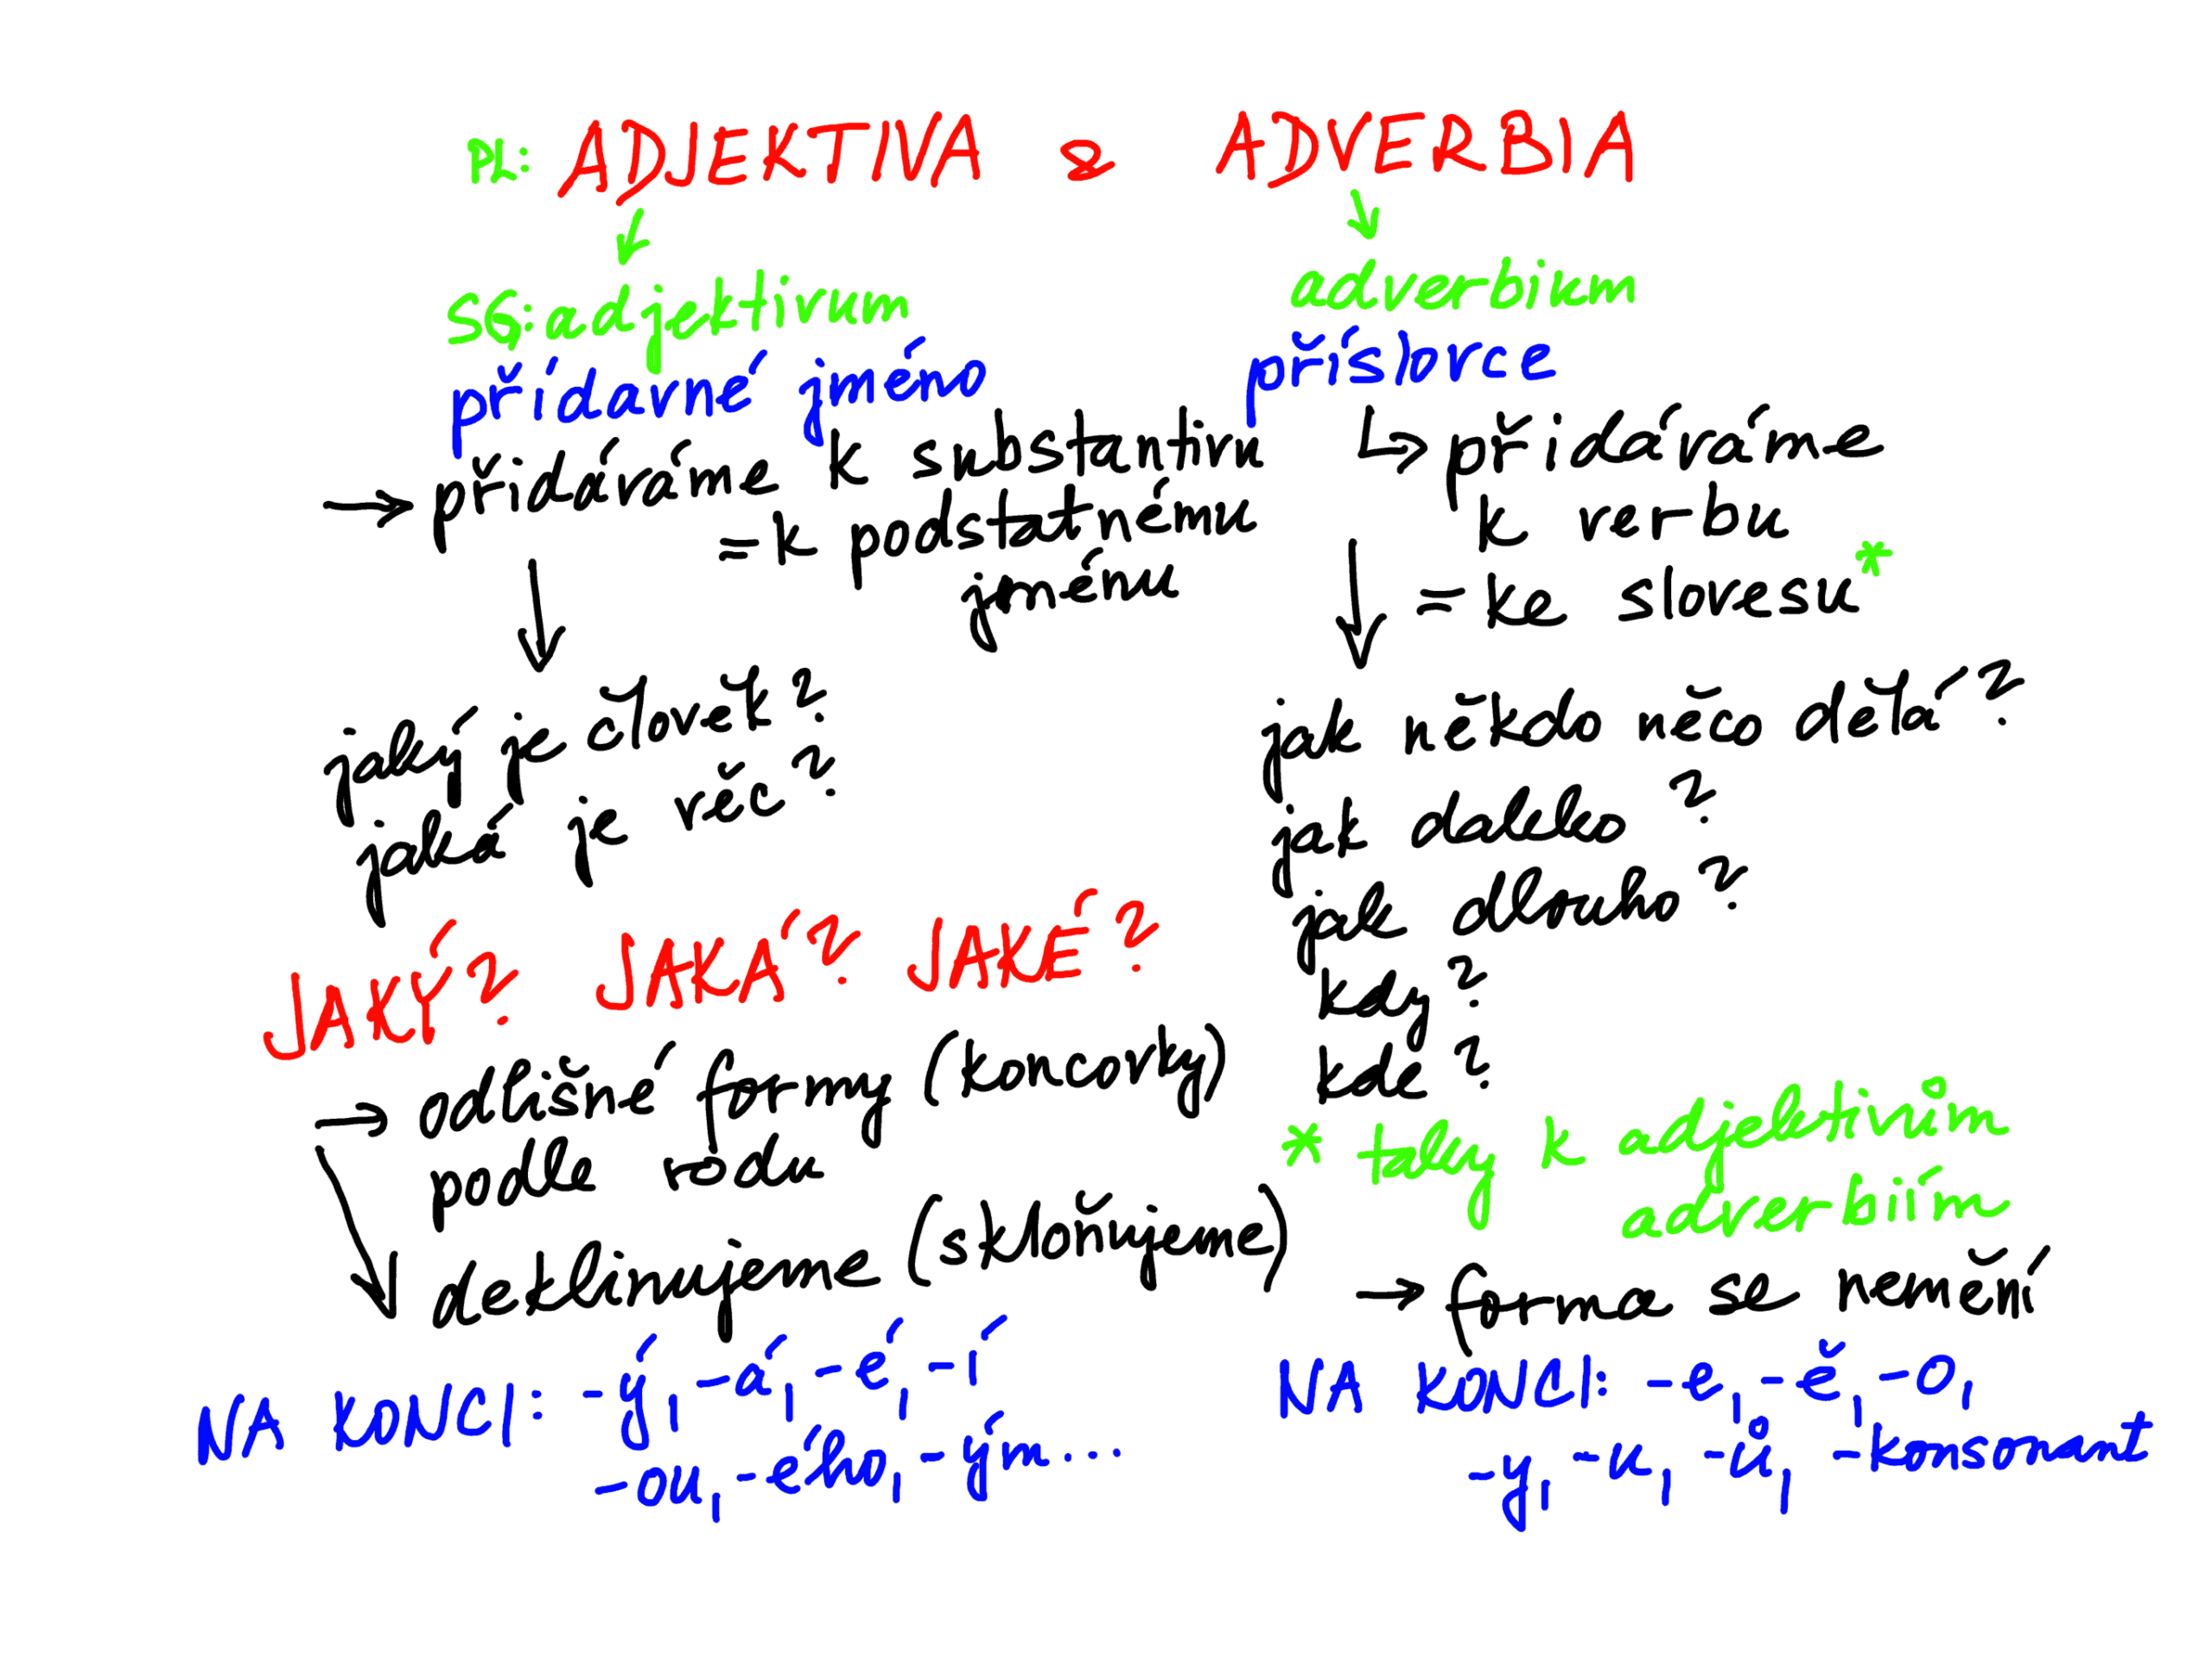 PL: ADJEKTIVA & ADVERBIA
SG: adjektivum
přídavné jméno
→ přidáváme k substantivu
= k podstatnému
jménu
jaký je člověk?
jaká je věc?
JAKÝ? JAKÁ? JAKÉ?
→ odlišné formy (koncovky)
podle rodu
deklinujeme (skloňujeme)
NA KONCI: -ý, -á, -é, -í
-ou, -ého, -ým...
adverbium
příslovce
↳ přidáváme
k verbu
= ke slovesu*
jak někdo něco dělá?
jak daleko?
jak dlouho?
kdy?
kde?
* taky k adjektivům
adverbiím
→ forma se nemění
NA KONCI: -e, -ě, -o,
-y, -u, -ů, -konsonant